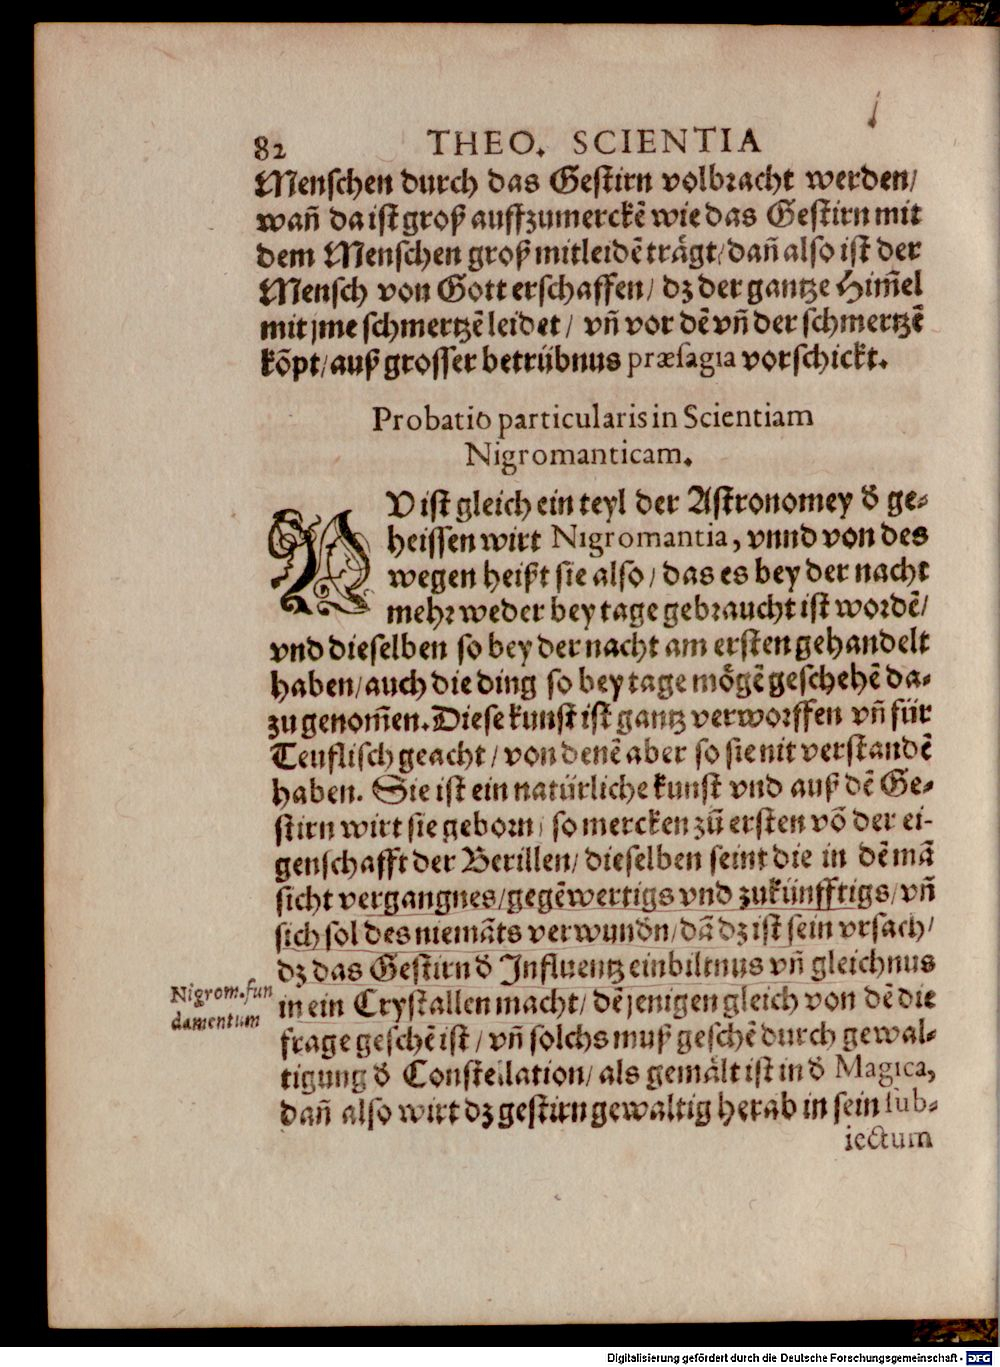 82 THEO. SCIENTIA
Menschen durch das Gestirn volbracht werden/
wañ da ist groß auffzumerckẽ wie das Gestirn mit
dem Menschen groß mitleidẽ trägt/ dañ also ist der
Mensch von Gott erschaffen/ dz der gantze Him̃el
mit jme schmertzẽ leidet/ vñ vor dẽ vñ der schmertzẽ
kõpt/ auß grosser betrübnus præsagia vorschickt.
Probatio particularis in Scientiam
Nigromanticam.
NV ist gleich ein teyl der Astronomey ď ge-
heissen wirt Nigromantia, vnnd von des
wegen heißt sie also/ das es bey der nacht
mehr weder bey tage gebraucht ist wordẽ/
vnd dieselben so bey der nacht am ersten gehandelt
haben/ auch die ding so bey tage mögẽ geschehẽ da-
zu genom̃en. Diese kunst ist gantz verworffen vñ für
Teuflisch geacht/ von denẽ aber so sie nit verstandẽ
haben. Sie ist ein natürliche kunst vnd auß dẽ Ge-
stirn wirt sie geborn/ so mercken zů ersten võ der ei-
genschafft der Berillen/ dieselben seint die in dẽ mã
sicht vergangnes/ gegẽwertigs vnd zukünfftigs/ vñ
sich sol des niemãts verwundň/ dã dz ist sein vrsach/
dz das Gestirn ď Influentz einbiltnus vñ gleichnus
in ein Crystallen macht/ dẽjenigen gleich von dẽ die
frage geschẽ ist/ vñ solchs muß geschẽ durch gewal-
tigung ď Constellation/ als gemält ist in ď Magica,
dañ also wirt dz gestirn gewaltig herab in sein sub-
iectum
Nigrom. fun
damentum
Digitalisierung gefördert durch die Deutsche Forschungsgemeinschaft - DFG